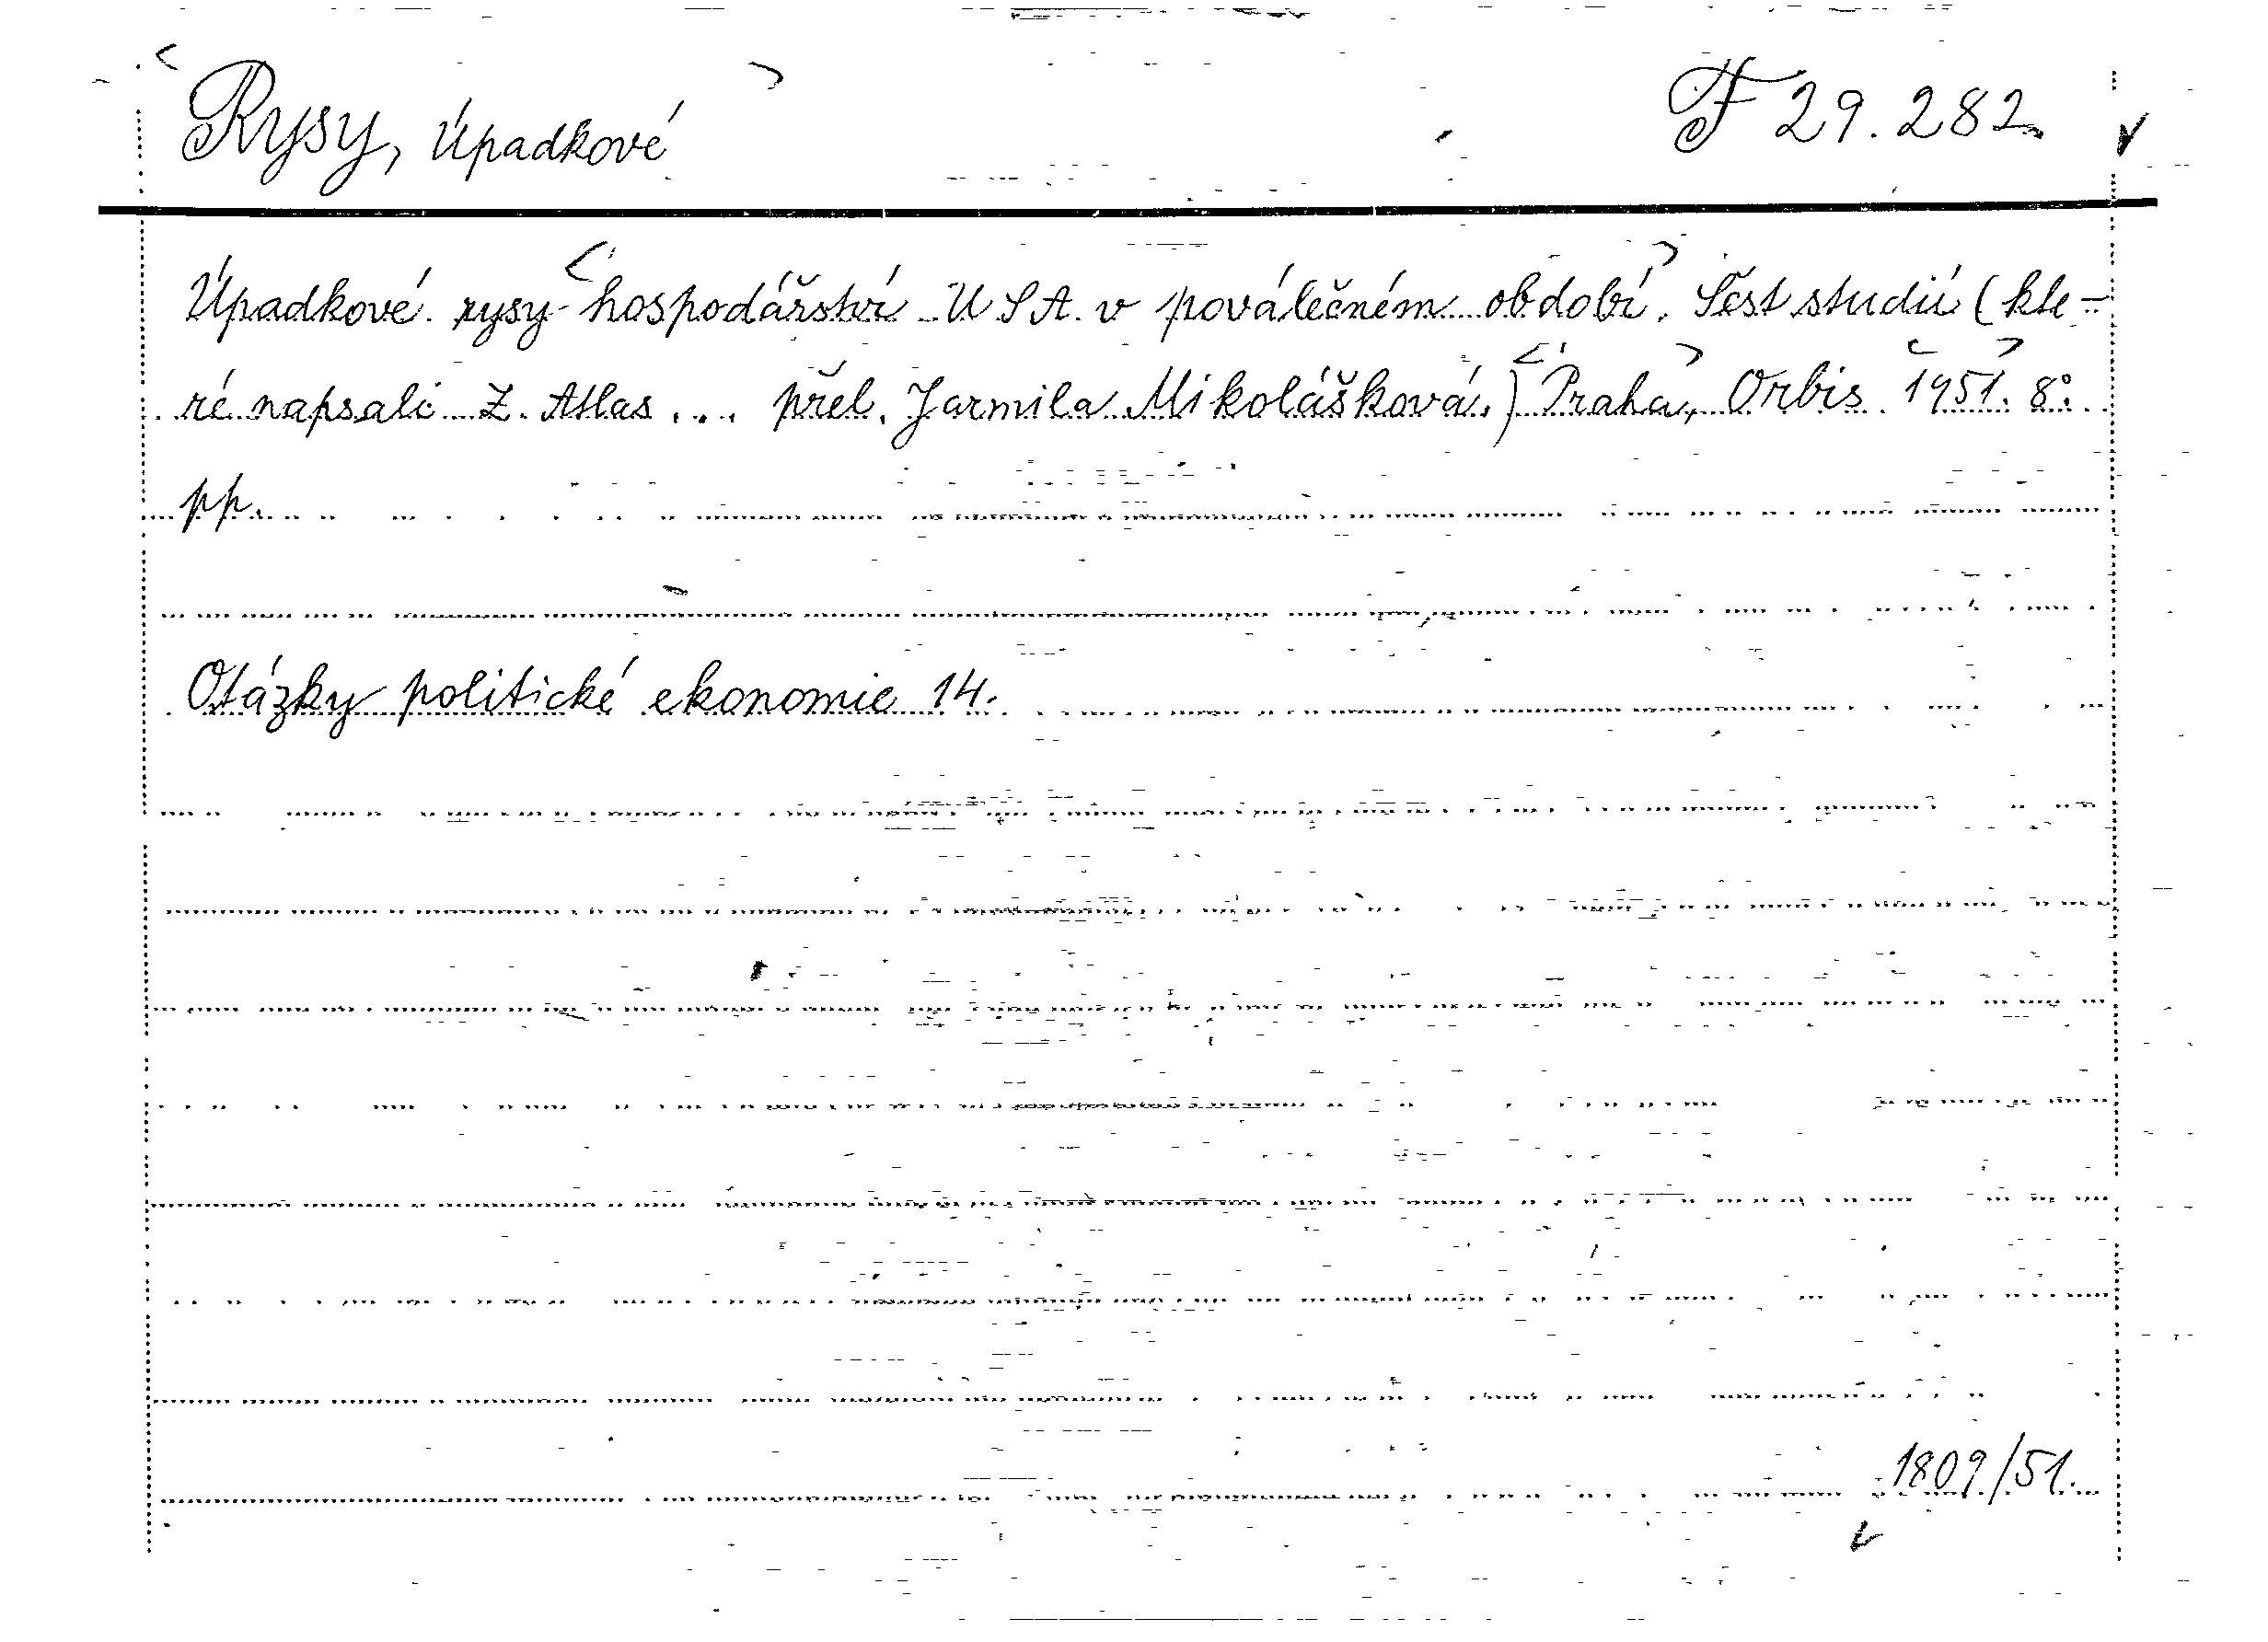 Rysy, Úpadkové F 29.282
Úpadkové rysy hospodářství USA v poválečném období. Šest studií (kte-
ré napsali Z. Atlas ... přel. Jarmila Mikolášková.) Praha, Orbis 1951. 8°.
pp.
Otázky politické ekonomie 14.
1809/51.